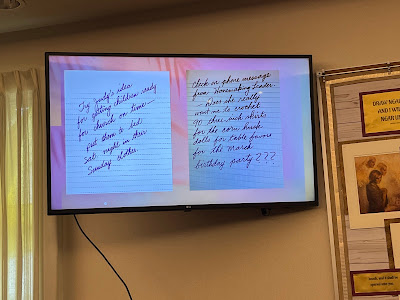 Try Judy's idea
for getting children ready
for church on time—
put them to bed
Sat. night in their
Sunday clothes.
Check on phone message
from Homemaking Leader
— Does she really
want me to crochet
three inch skirts
for the corn husk
dolls for table favors
for the March
birthday party???
DRAW NEAR
AND I WIL
NEAR UN